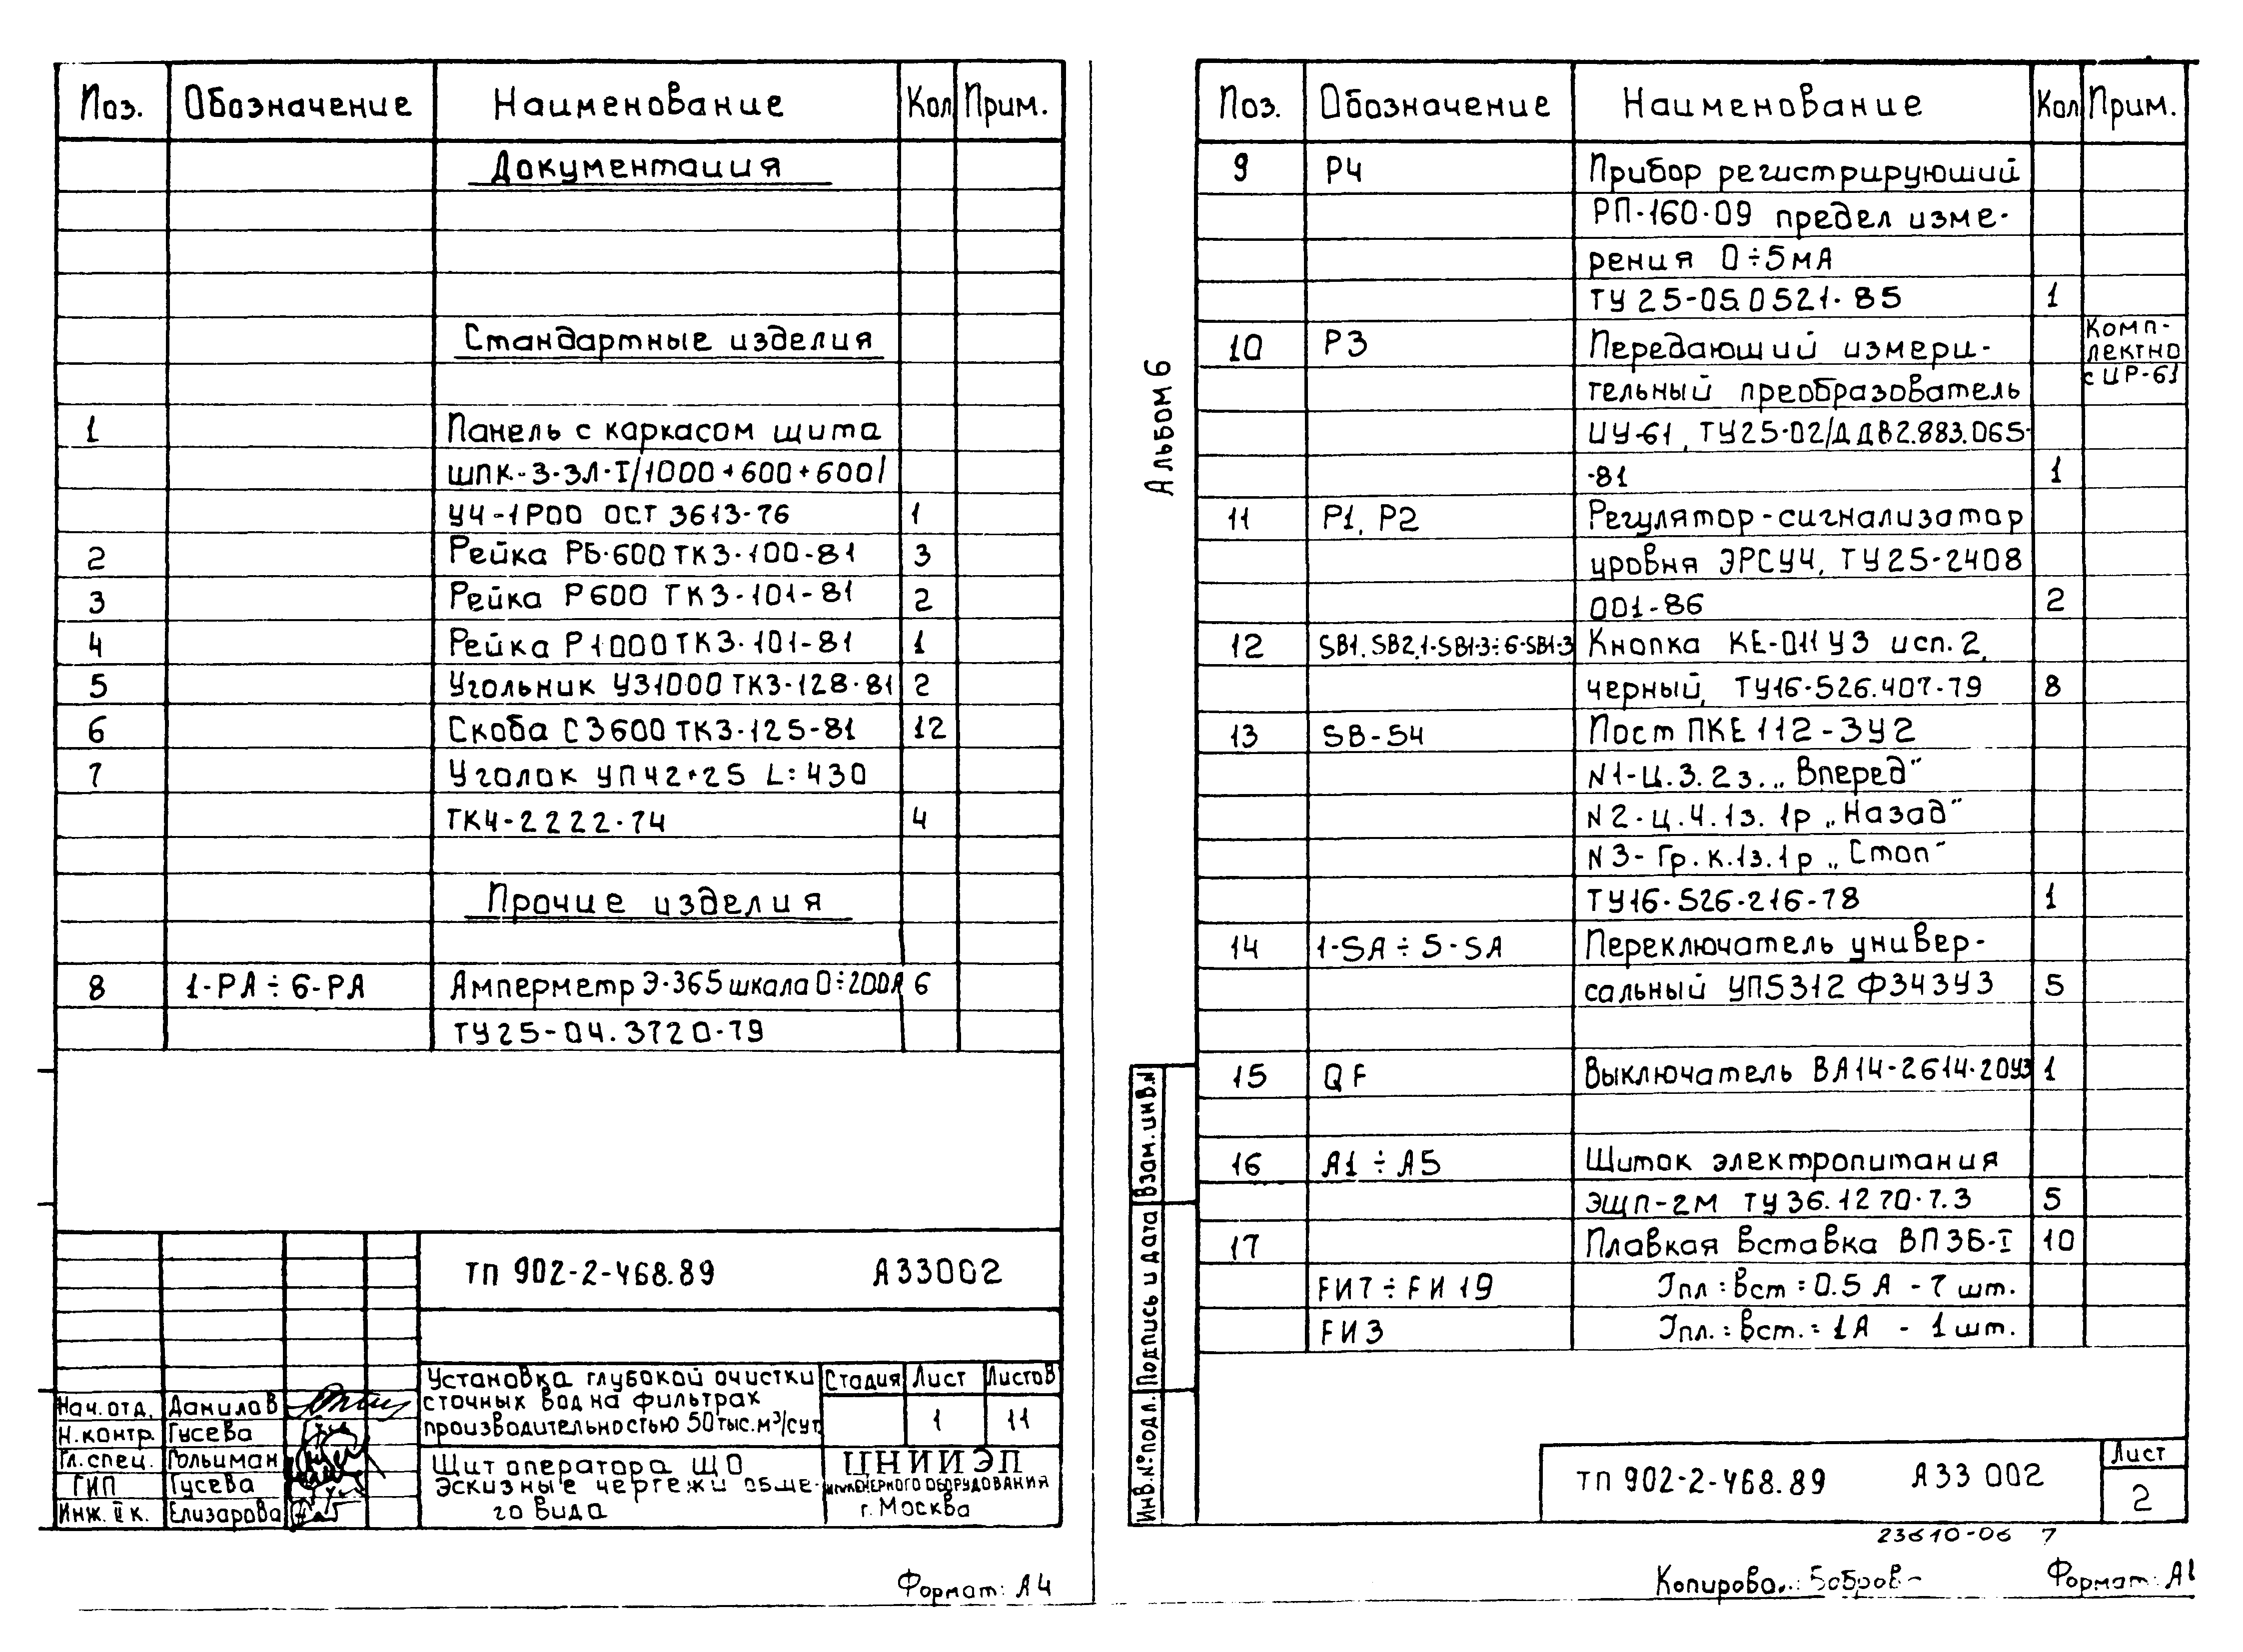 Поз. Обозначение Наименование Кол Прим.
Документация
Стандартные изделия
1 Панель с каркасом щита
ШПК-3-ЗЛ-I/1000+600+600/
У4-1Р00 ОСТ 3613-76 1
2 Рейка РБ-600 ТК3-100-81 3
3 Рейка Р600 ТК3-101-81 2
4 Рейка Р1000 ТК3-101-81 1
5 Угольник УЗ1000 ТК3-128-81 2
6 Скоба СЗ600 ТК3-125-81 12
7 Уголок УП42+25 L=430
ТК4-2222-74 4
Прочие изделия
8 1-РА÷6-РА Амперметр Э-365 шкала 0÷200А 6
ТУ25-04.3720-79
ТП 902-2-468.89 АЗЗ002
Установка глубокой очистки
сточных вод на фильтрах
производительностью 50 тыс.м³/сут
Стадия Лист Листов
1 11
Нач.отд. Данилов
Н.контр. Гусева
Гл.спец. Гольцман
ГИП Гусева
Инж. II к. Елизарова
Щит оператора ЩО
Эскизные чертежи обще-
го вида
ЦНИИЭП
инженерного оборудования
г. Москва
Формат: А4
Альбом 6
Поз. Обозначение Наименование Кол Прим.
9 Р4 Прибор регистрирующий
РП-160-09 предел изме-
рения 0÷5мА
ТУ 25-05.0521-85 1
10 Р3 Передающий измери- Комп-
лектно
тельный преобразователь с ИР-61
ИУ-61, ТУ25-02/ДДВ2.883.065-
-81 1
11 Р1, Р2 Регулятор-сигнализатор
уровня ЭРСУ4, ТУ25-2408
001-86 2
12 SB1, SB2, 1-SB1-3÷6-SB1-3 Кнопка КЕ-011У3 исп.2,
черный, ТУ16-526.407-79 8
13 SB-S4 Пост ПКЕ 112-3У2
N1-Ц.3.2з. „Вперед"
N2-ц.4.1з.1р „Назад"
N3-Гр.к.1з.1р „Стоп"
ТУ16-526-216-78 1
14 1-SA÷5-SA Переключатель универ-
сальный УП5312 Ф343У3 5
15 QF Выключатель ВА14-2614-20У3 1
16 А1÷А5 Щиток электропитания
ЭЩП-2М ТУ36.1270-7.3 5
17 Плавкая вставка ВП3Б-I 10
FИ7÷FИ19 Iпл=вст=0.5 А - 7 шт.
FИ3 Iпл.=вст.=1А - 1 шт.
Взам.инв.N
Подпись и дата
Инв.№подл.
ТП 902-2-468.89 АЗЗ 002
Лист
2
23610-06 7
Формат: А1